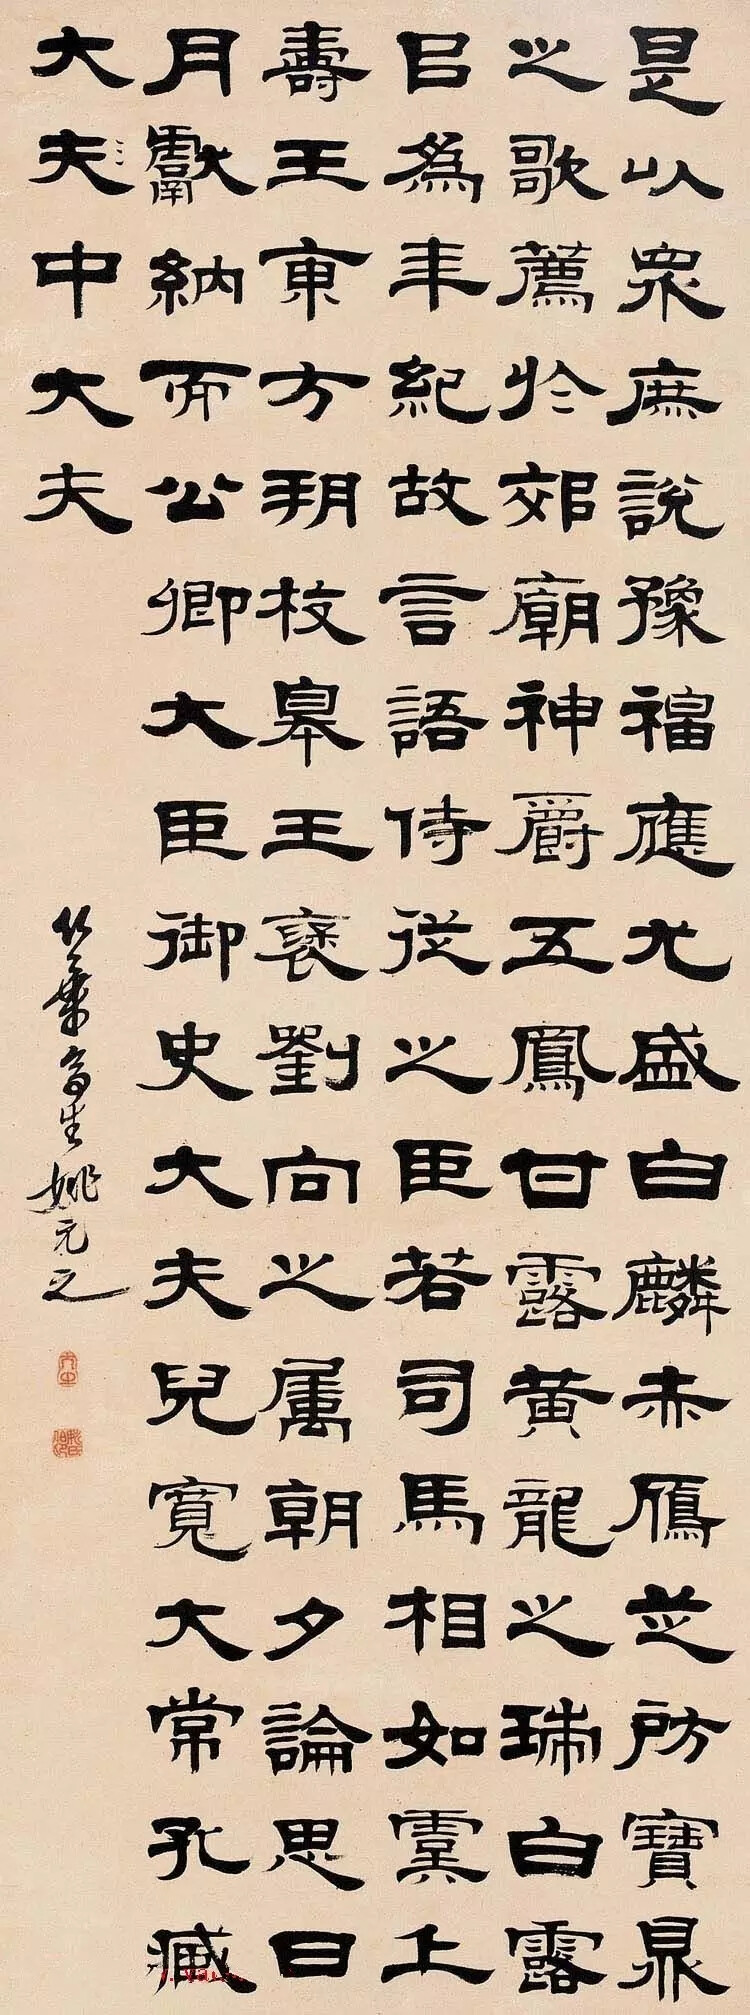 是以眾庶說豫福應尤盛白麟赤鴈芝房寶鼎
之歌薦於郊廟神爵五鳳甘露黃龍之瑞白露
㠯為年紀故言語侍從之臣若司馬相如虞上
壽王東方朔枚皋王襃劉向之属朝夕論思日
月獻納而公卿大臣御史大夫兒寬大常孔臧
大夫中大夫
竹葉亭生姚元之